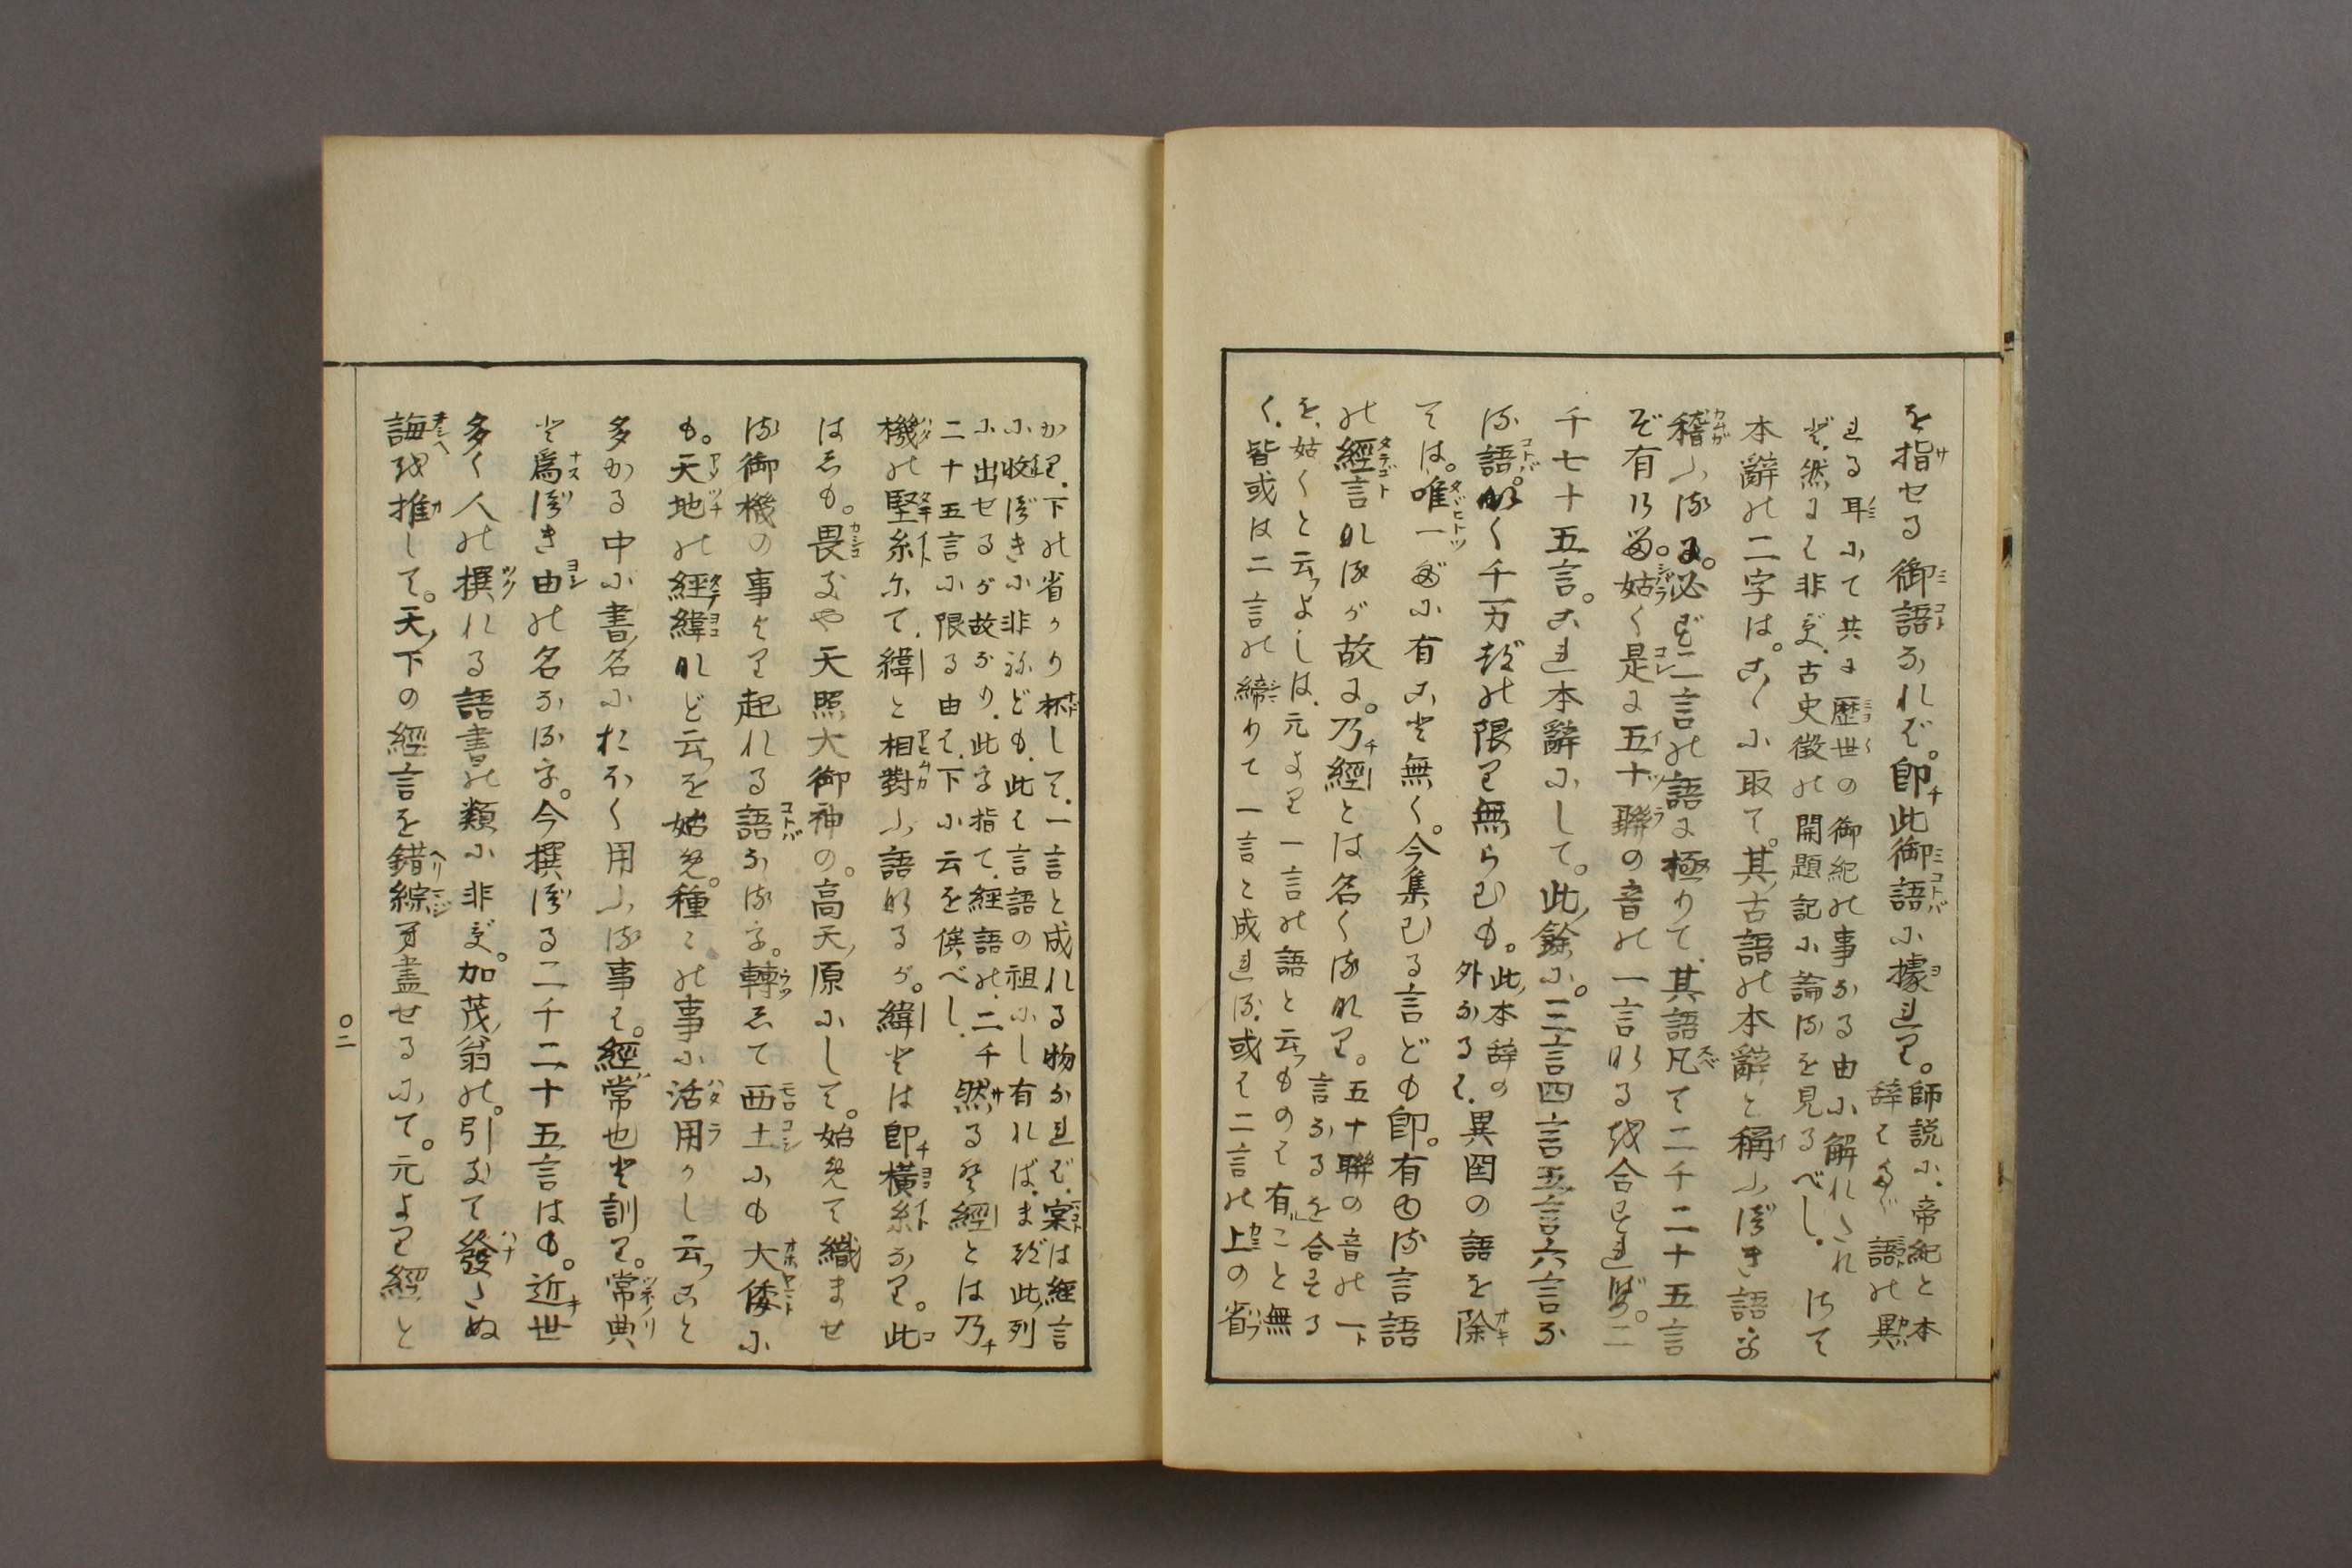 を指せる御語なれば。卽此御語に據れり。師説に、帝紀と本
辭てふ語の黙
れる耳にて共に歴世の御紀の事なる由に解れされ
ど、然には非ず、古史徴の開題記に論るを見るべし。はて
本辭の二字は。茲に取て。其古語の本辭と稱ふべき語を
稽ふるに。必ず二言の語に極りて、其語凡て二千二十五言
ぞ有ける。姑く是に五十聯の音の一言なるを合すれば。二
千七十五言。これ本辭にして。此餘に。三言四言五言六言な
る語。なく千万ぞの限り無らむも。此本辞の
外なるは、異国の語を除
ては。唯一だに有こと無く。今集むる言ども卽。有ゆる言語
の經言なるが故に。乃經とは名くるなり。五十聯の音の一
言なるを合する
を、姑くと云よしは、元より一言の語と云ものは有こと無
く、皆或は二言の締りて一言と成れる、或は二言の上の省
かり、下の省かり杯して、一言と成れる物なれば、寀は經言
に收べきに非ねども、此は言語の祖にし有れば、まづ此列
に出せるが故なり、此を指て、經語の、二千
二十五言に限る由は、下に云を俟べし、然るを經とは乃
機の堅糸にて、緯と相對ふ語なるが。緯とは卽横糸なり。此
はしも。畏きや天照大御神の。高天原にして。始めて織ませ
る御機の事より起れる語なるを。轉して西土にも大倭に
も。天地の經緯など云を始め。種ゝの事に活用かし云こと
多かる中に書名におほく用ふる事は。經常也と訓り。常典
と爲べき由の名なるを。今撰べる二千二十五言はも。近世
多く人の撰れる語書の類に非ず。加茂翁の。引きて發さぬ
誨を推して。天下の經言を錯綜み盡せるにて。元より經と
〇二